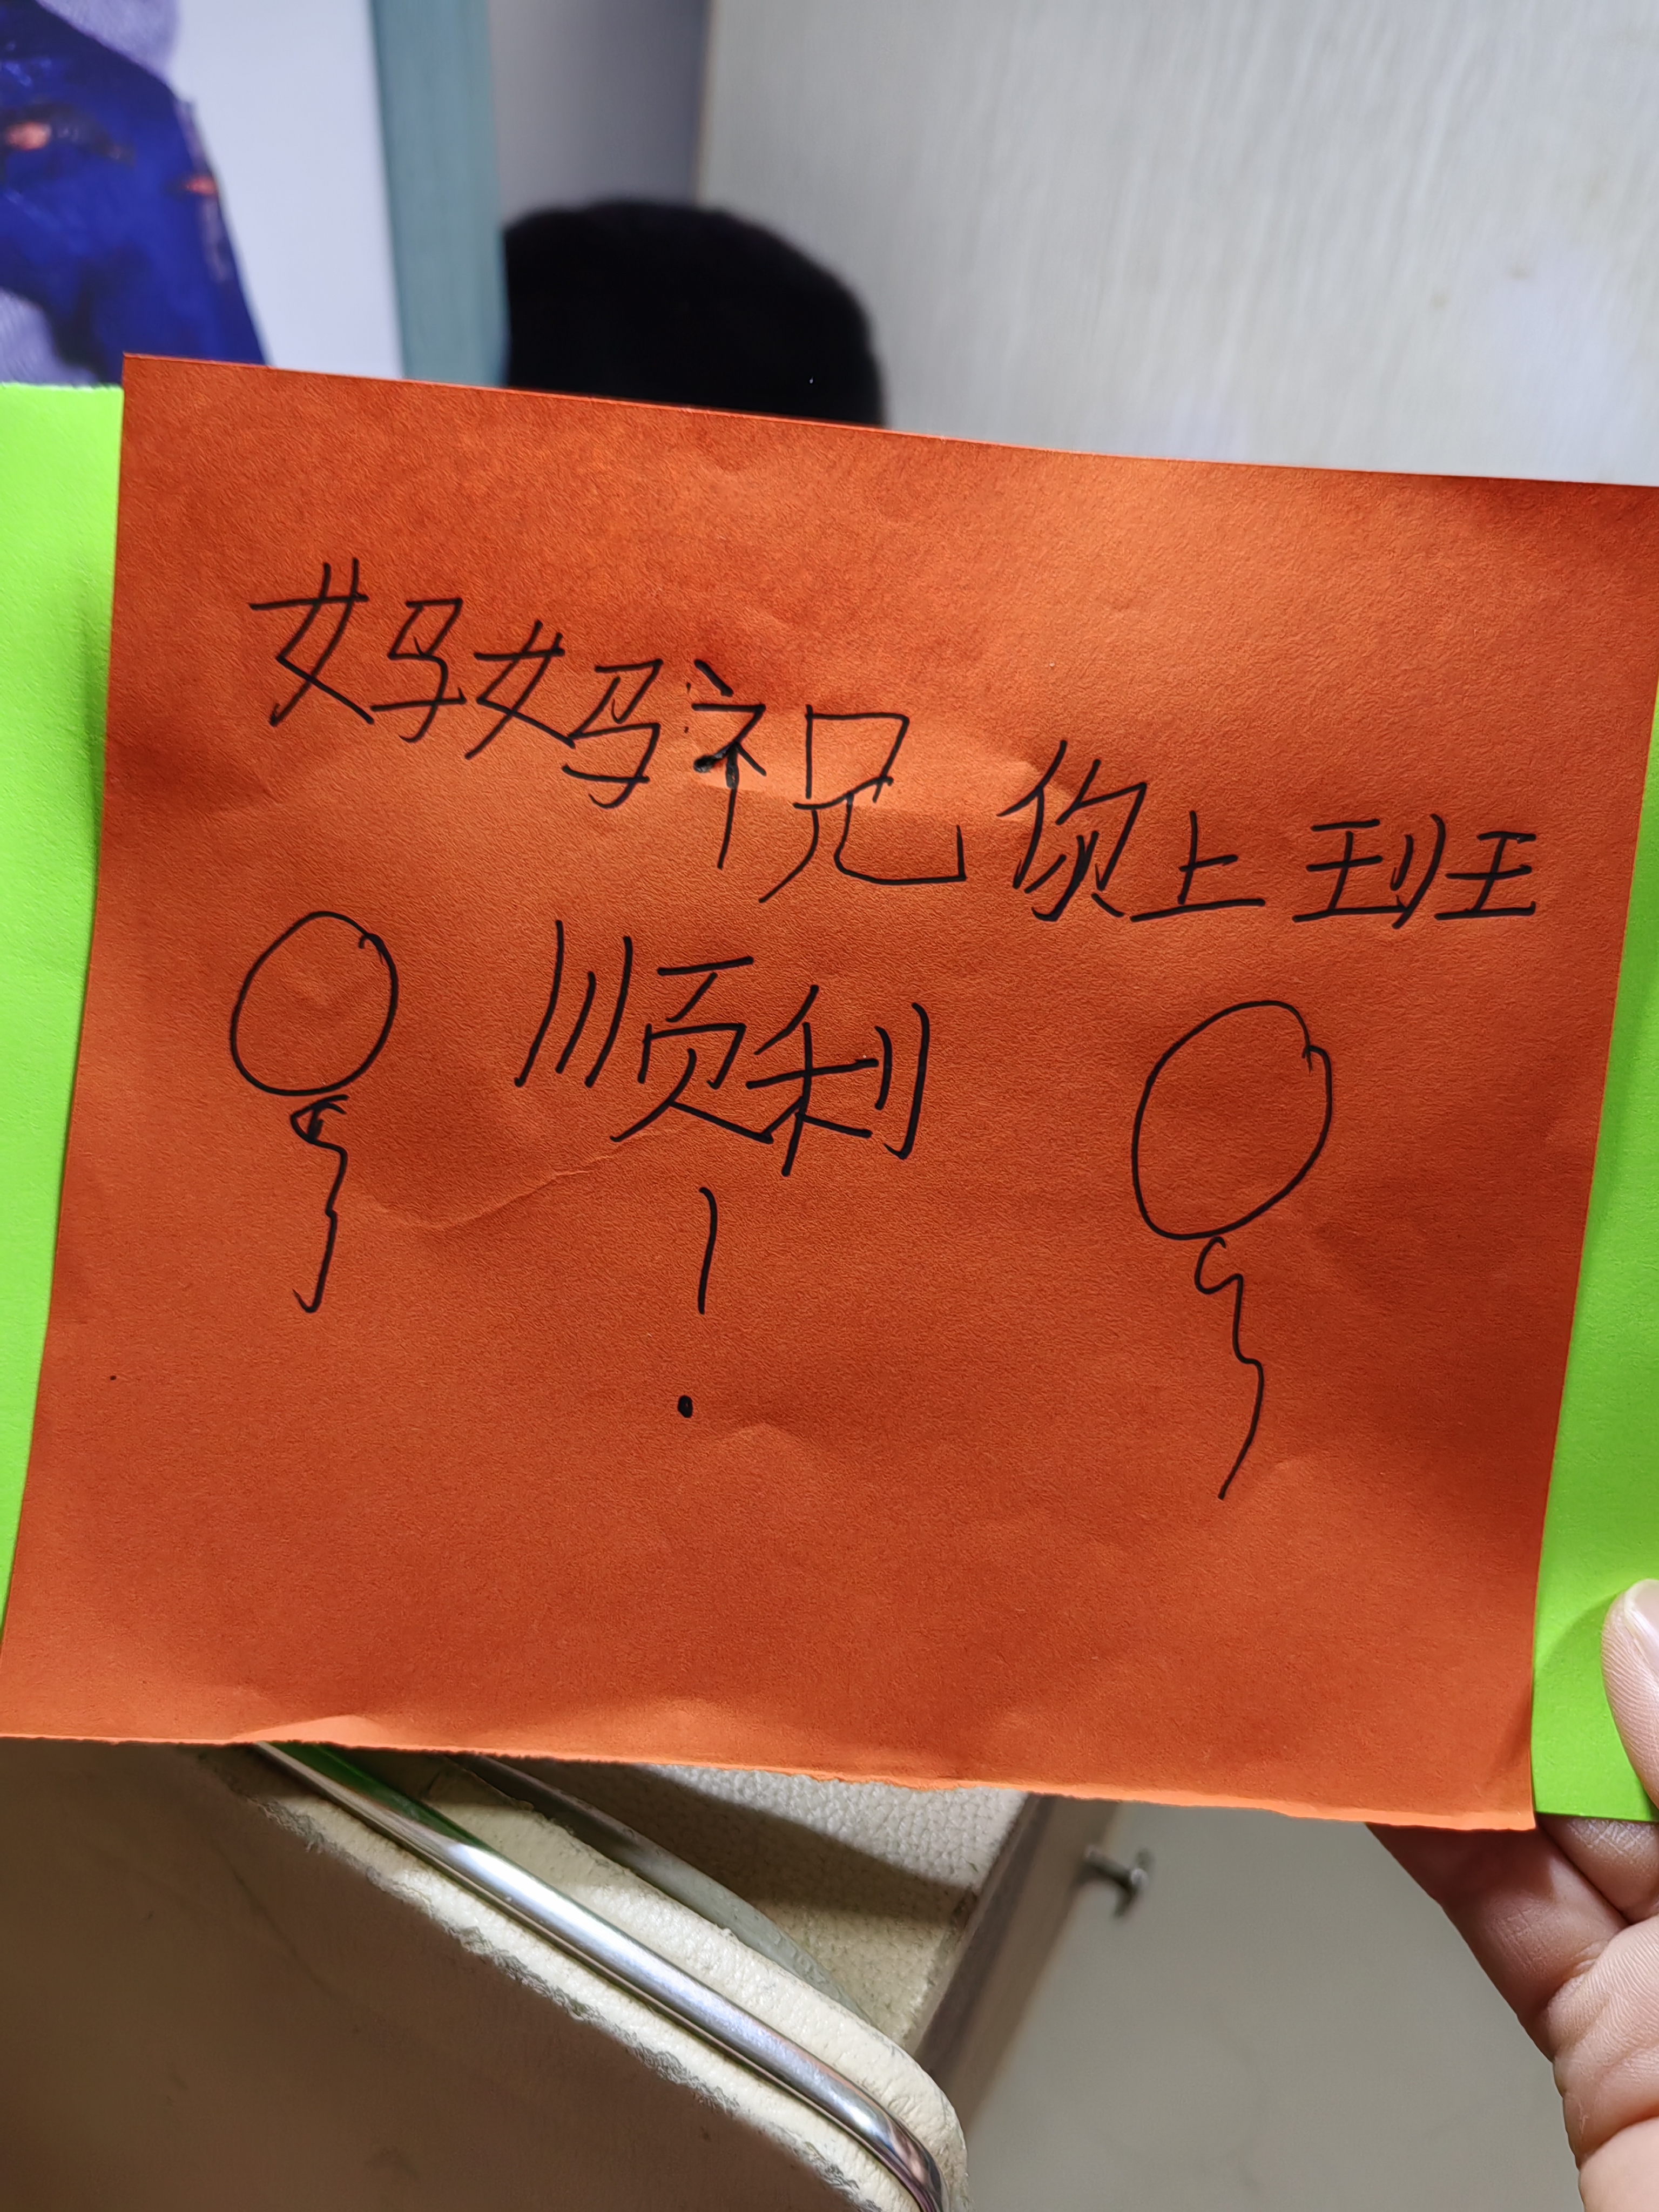 妈妈祝你上班
顺利
!